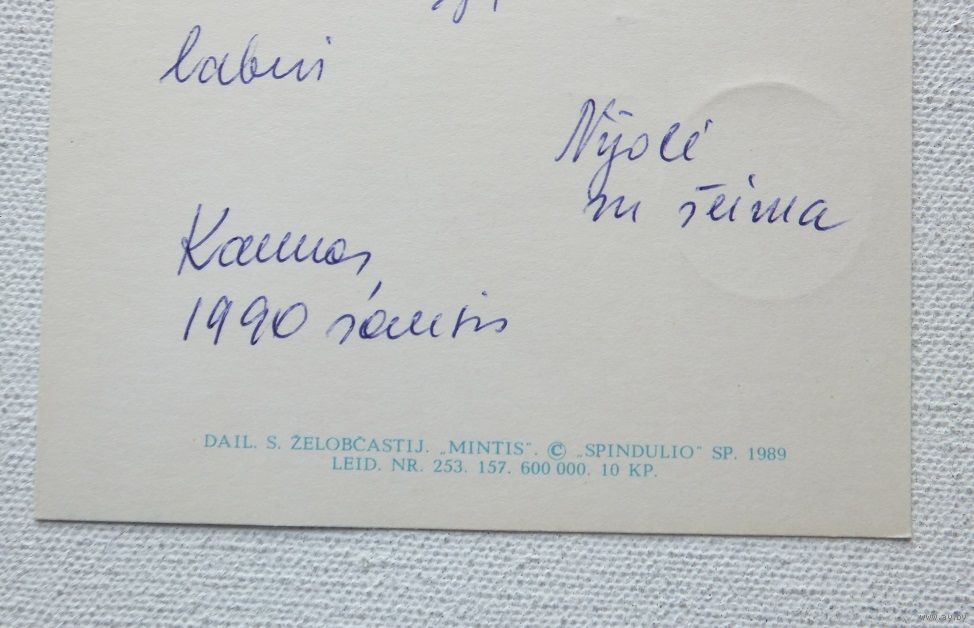 labui
Nijolė
su šeima
Kaunas,
1990 sausis
DAIL. S. ŽELOBČASTIJ. „MINTIS“. © „SPINDULIO“ SP. 1989
LEID. NR. 253. 157. 600 000. 10 KP.
www.ay.by